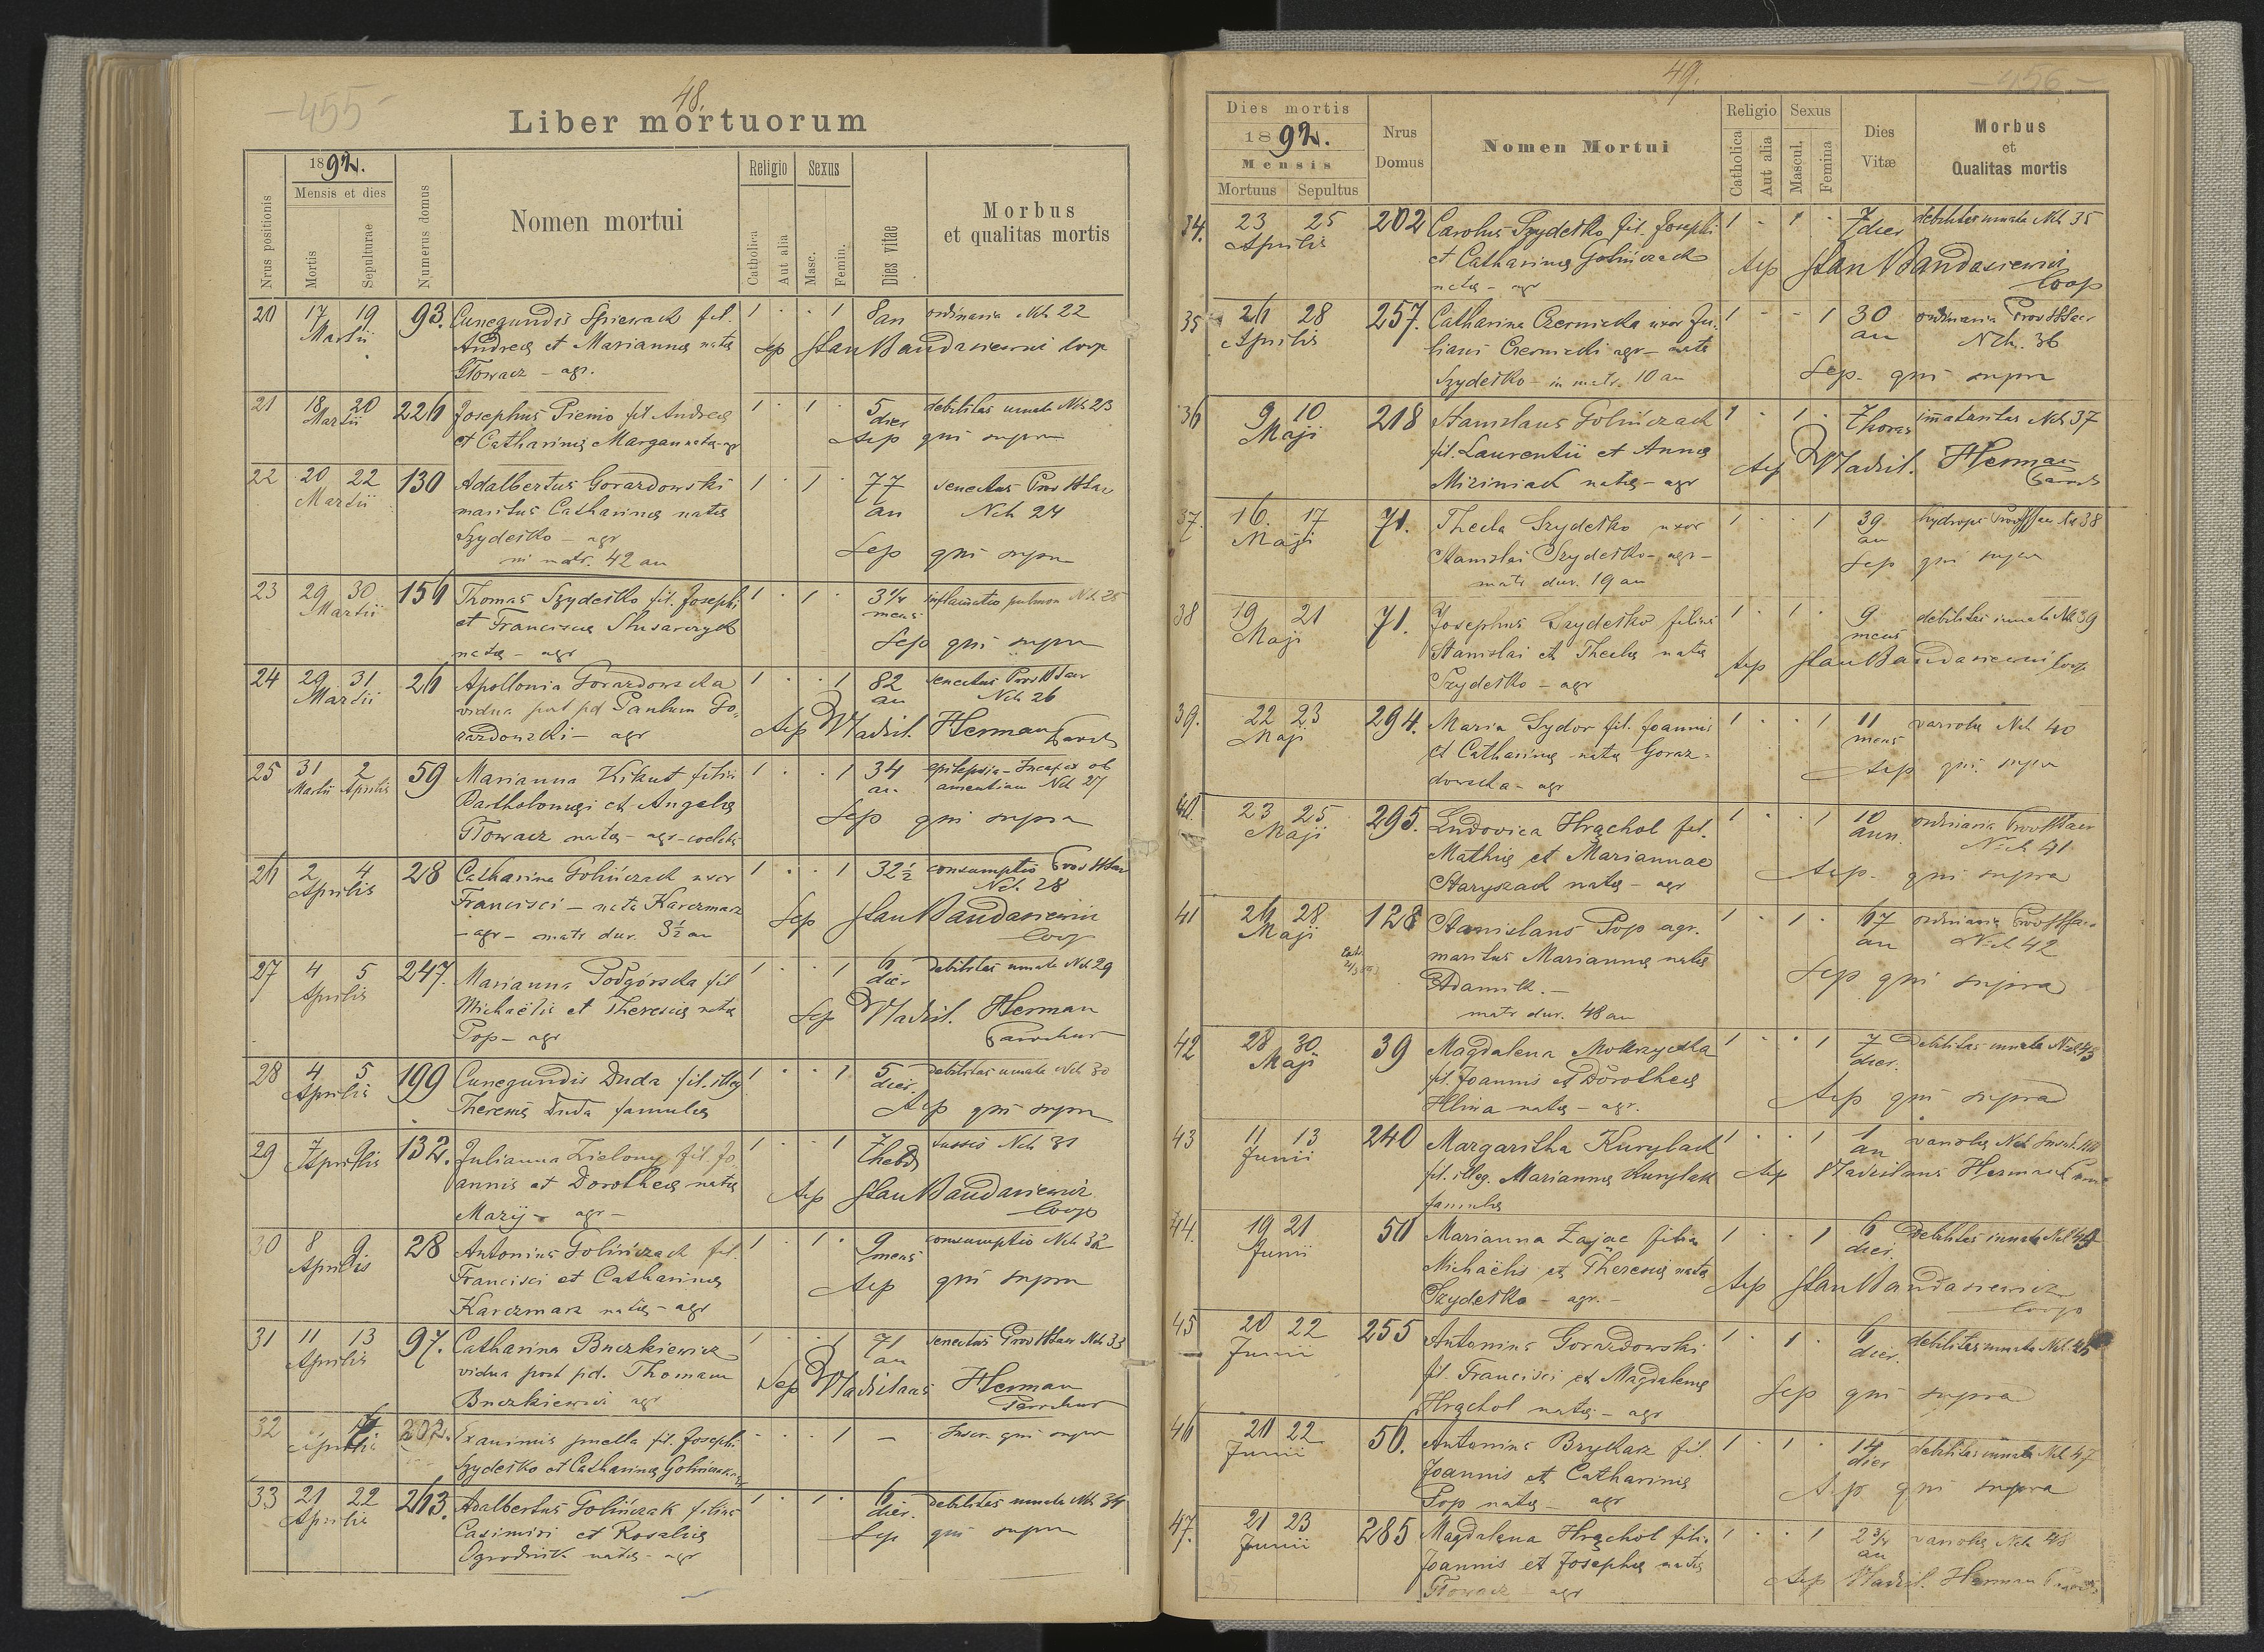 -455-
48.
Liber mortuorum
Nrus positionis
1892.
Mensis et dies
Mortis
Sepulturae
Numerus domus
Nomen mortui
Religio
Catholica
Aut alia
Sexus
Masc.
Femin.
Dies vitae
Morbus
et qualitas mortis
20 17 19 93. Cunegundis Spiewack fil. 1 · · 1 8 an ordinaria Nch 22
Martii Andreæ et Mariannæ natæ Sep Stan Bandasiewicz Coop
Głowacz - agr.
21 18 20 226 Josephus Pienio fil Andreæ 1 · 1 · 5 debilitas innata Nch 23
Martii et Catharinæ Margan natæ agr dier Sep qui supra
22 20 22 130 Adalbertus Gorazdowski 1 · 1 · 77 senectus Prov
Martii maritus Catharinæ natæ an Nch 24
Szydełko - agr
in matr. 42 an Sep qui supra
23 29 30 156 Thomas Szydełko fil. Josephi 1 · 1 · 3 1/4 inflamatio pulmon Nch 25
Martii et Franciscæ Slusarczyk mens
natæ - agr Sep qui supra
24 29 31 26 Apollonia Gorazdowska 1 · · 1 82 senectus Prov
Martii vidua post pd Paulum Go- an Nch 26
razdowski - agr Sep Wladisl. Herman Paroch
25 31 2 59 Marianna Kikut filia 1 · · 1 34 epilepsia - Incapax ob
Martii Aprilis Bartholomæi et Angelæ an amentiam Nch 27
Głowacz natæ - agr - coelebs Sep qui supra
26 2 4 28 Catharina Golińczack uxor 1 · · 1 32 1/2 consumptio Prov
Aprilis Francisci - nata Karczmarz Nch 28
- agr - matr dur. 3 1/2 an Sep Stan Bandasiewicz
Coop
27 4 5 247. Marianna Podgórska fil 1 · · 1 6 debilitas innata Nch 29
Aprilis Michaëlis et Theresiæ natæ dier
Pop - agr Sep Wladisl. Herman
Parochus
28 4 5 199 Cunegundis Duda fil. illeg 1 · · 1 5 debilitas innata Nch 30
Aprilis Theresiæ Duda famulæ dier Sep qui supra
29 7 9 132. Julianna Zielony fil. Jo- 1 · · 1 7 tussis Nch 31
Aprilis annis et Dorotheæ natæ hebd
Mazij - agr - Sep Stan Bandasiewicz
Coop
30 8 9 28 Antonius Golińczack fil. 1 · 1 · 9 consumptio Nch 32
Aprilis Francisci et Catharinæ mens
Karczmarz natæ - agr Sep qui supra
31 11 13 97. Catharina Buczkiewicz 1 · · 1 71 senectus Prov Nch 33
Aprilis vidua post pd. Thomam an
Buczkiewicz agr Sep Wladislaus Herman
Parochus
32 Aprilis 202. Exanimis puella fil. Josephi - - - 1 - Inscr. qui supra
Szydełko et Catharinæ Golińczak agr
33 21 22 263. Adalbertus Golińczak filius 1 · 1 · 6 debilitas innata Nch 34
Aprilis Casimiri et Rosaliæ dier.
Ogrodnik natæ - agr Sep qui supra
49.
-456-
Dies mortis
1892.
Mensis
Mortuus
Sepultus
Nrus
Domus
Nomen Mortui
Religio
Catholica
Aut alia
Sexus
Mascul.
Femina
Dies
Vitæ
Morbus
et
Qualitas mortis
34. 23 25 202 Carolus Szydełko fil. Josephi 1 - 1 · 7 debilitas innata Nch 35
Aprilis et Catharinæ Golińczack dier
natæ - agr Sep Stan Bandasiewicz
Coop
35 26 28 257. Catharina Czernicka uxor Ju- 1 - - 1 30 ordinaria Prov
Aprilis liani Czernicki agr - nata an Nch. 36
Szydełko - in matr. 10 an Sep. qui supra
36 9 10 218 Stanislaus Golińczack 1 · 1 · 7 immaturitas Nch 37
Maji fil. Laurentii et Annæ horas
Miziniack natæ - agr Sep Wladisl. Herman
Paroch
37. 16. 17 71. Thecla Szydełko uxor 1 · · 1 39 hydrops Nch 38
Maji Stanislai Szydełko - agr - an
matr dur. 19 an Sep qui supra
38 19 21 71. Josephus Szydełko filius 1 · 1 · 9 debilitas innata Nch 39
Maji Stanislai et Theclæ natæ mens
Szydełko - agr Sep Stan Bandasiewicz Coop
39. 22 23 294. Maria Sydor fil. Joannis 1 · · 1 11 variolæ Nch 40
Maji et Catharinæ natæ Goraz- mens
dowska - agr Sep qui supra
40. 23 25 295. Ludovica Hrąchol fil. 1 · · 1 10 ordinaria Prov
Maji Mathiæ et Mariannae ann. Nch 41
Staryszack natæ - agr Sep. qui supra
41 26 28 128 Stanislaus Pop agr. 1 · 1 · 67 ordinaria Prov
Maji maritus Mariannæ natæ an Nch 42
Adamik. - Sep qui supra
matr dur. 48 an
42 28 30 39 Magdalena Mokrzycka 1 · · 1 7 debilitas innata Nch 43
Maji fil. Joannis et Dorotheæ dier.
Hlina natæ - agr. Sep qui supra
43 11 13 240 Margaritha Kurylack 1 · · 1 1 variolæ Nch
Junii fil. illeg. Mariannæ Kurylak an Sep Wladislaus Herman
famulæ
44. 19 21 50 Marianna Zając filia 1 · · 1 6 debilitas innata Nch
Junii Michaëlis et Theresiæ natæ dier.
Szydełko - agr. - Sep Stan Bandasiewicz
Coop
45 20 22 255 Antonius Gorazdowski 1 · 1 · 6 debilitas innata Nch. 46
Junii fil. Francisci et Magdalenæ dier.
Hrąchol natæ - agr Sep qui supra
46 20 22 56. Antonius Bryckarz fil. 1 · 1 · 14 debilitas innata Nch 47
Junii Joannis et Catharinæ dier
Pop natæ - agr Sep qui supra
47. 21 23 285 Magdalena Hrąchol filia 1 · · 1 2 3/4 variolæ Nch 48
Junii Joannis et Josephæ natæ an
Głowacz agr Sep Wladisl. Herman